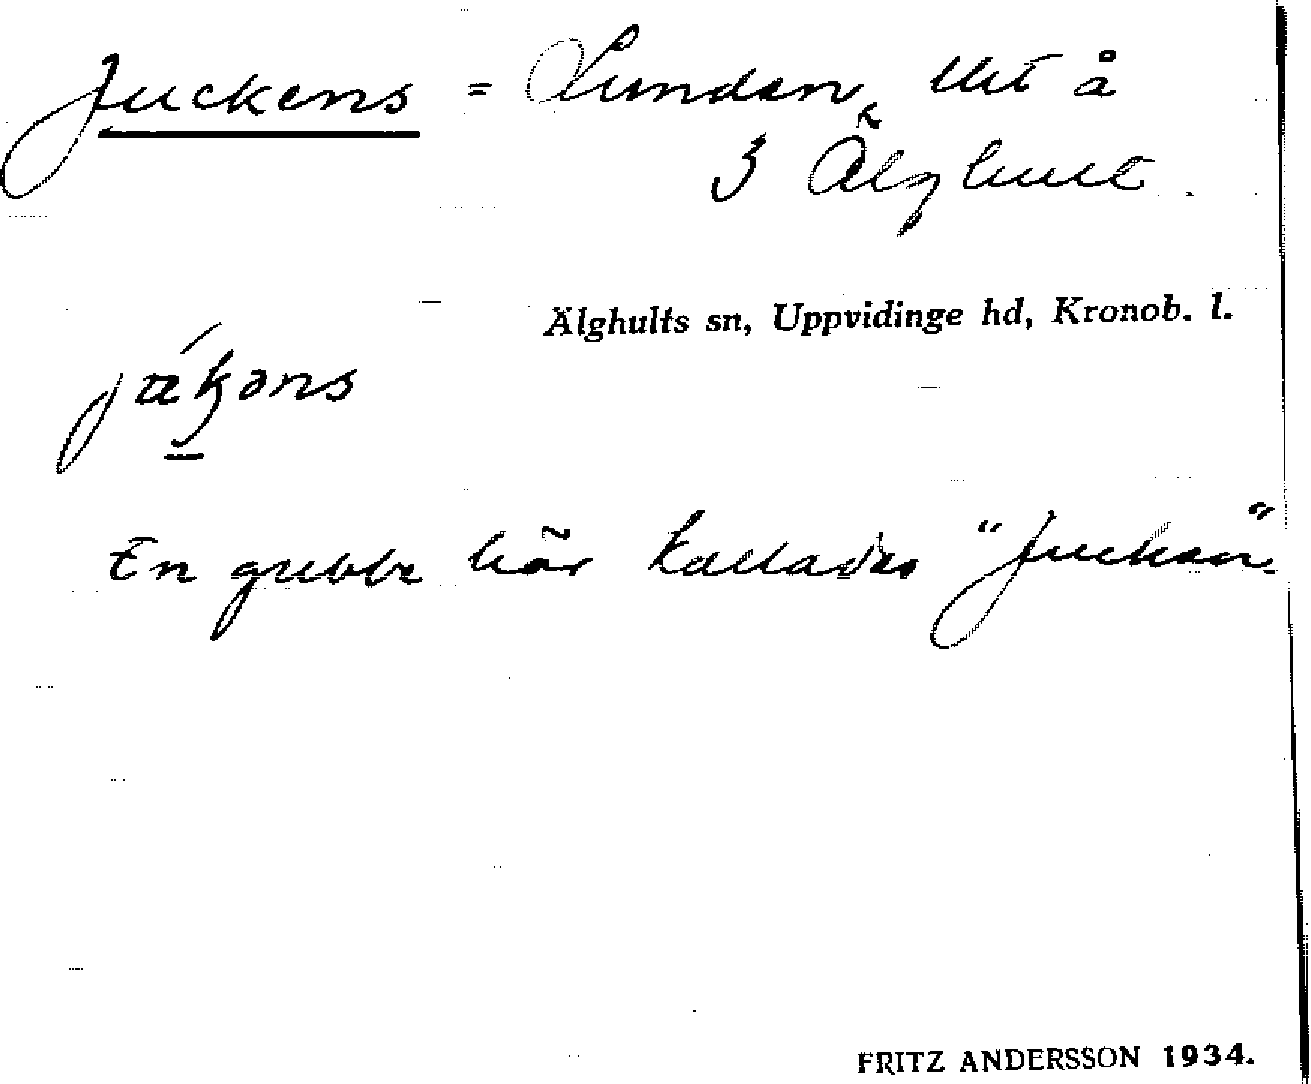 Juckens = Lunden, lht å
3 Älghult.
Älghults sn, Uppvidinge hd, Kronob. l.
En gubbe här kallades "Jucken".
FRITZ ANDERSSON 1934.